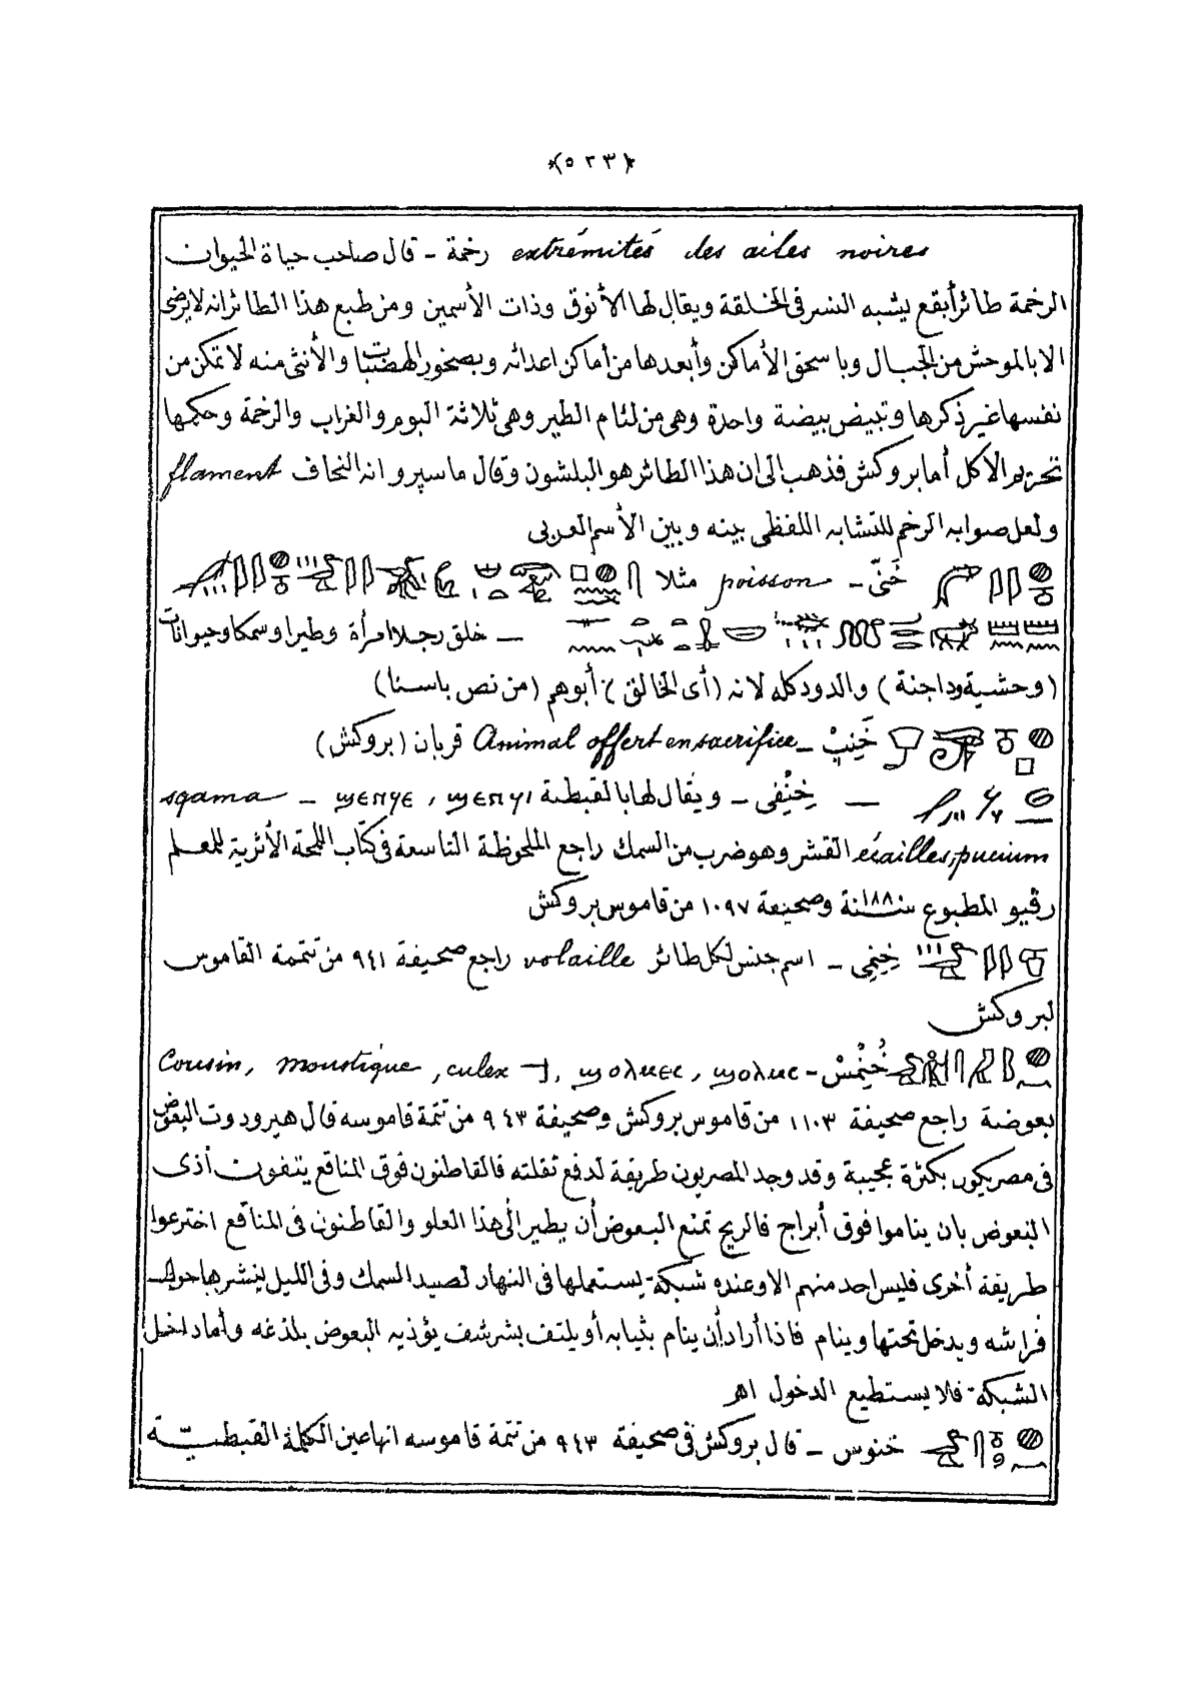 ﴿٥٢٣﴾
extrémités des ailes noires رخمة – قال صاحب حياة الحيوان
الرخمة طائر أبقع يشبه النسر فى الخلقة ويقال لها الأنوق وذات الأسمين ومن طبع هذا الطائر انه لا يرضى
الا بالموحش من الجبال وبا سحق الأماكن وأبعدها من أماكن اعدائه وبصخور الهضبات والأنثى منه لا تمكن من
نفسها غير ذكرها وتبيض بيضة واحدة وهى من لئام الطير وهى ثلاثة البوم والغراب والرخمة وحكمها
تحريم الاكل أما بروكش فذهب الى ان هذا الطائر هو البلشون وقال ماسپرو انه النحاف flament
ولعل صوابه الرخم للتشابه اللفظى بينه وبين الأسم العربى
خَنىّ – poisson مثلا
– خلق رجلا امرأة وطيرا وسمكا وحيوانات
(وحشية وداجنة) والدود كله لانه (أى الخالق) أبوهم (من نص باسنا)
خَنِبْ – Animal offert en sacrifice قربان (بروكش)
– خِنْفِى – ويقال لها بالقبطية ϣⲉⲛϥⲓ , ϣⲉⲛϥⲉ – sqama
écailles, pucium القشر وهو ضرب من السمك راجع الملحوظة التاسعة فى كتاب اللمحة الأثرية للمعلم
رقيو المطبوع سنة ١٨٨ وصحيفة ١٠٩٧ من قاموس بروكش
خِنِمِى – اسم جنس لكل طائر volaille راجع صحيفة ٩٤١ من تتممة القاموس
لبروكش
خُنِمْسْ – ϣⲟⲗⲙⲥ , ϣⲟⲗⲙⲉⲥ , culex , moustique , Cousin
بعوضة راجع صحيفة ١١٠٣ من قاموس بروكش وصحيفة ٩٤٣ من تتمة قاموسه قال هيرودوت البعوض
فى مصر يكون بكثرة عجيبة وقد وجد المصريون طريقة لدفع ثقلته فالقاطنون فوق المناقع يتفوت أذى
البعوض بان يناموا فوق أبراج فالريح تمنع البعوض أن يطير الى هذا العلو والقاطنون فى المناقع اخترعوا
طريقة أخرى فليس احد منهم الا وعنده شبكة يستعملها فى النهار لصيد السمك وفى الليل ينشرها حول
فراشه ويدخل تحتها وينام فاذا أراد أن ينام بثيابه أو يلتف بشرشف يؤذيه البعوض بلذغه وأما داخل
الشبكة فلا يستطيع الدخول اهـ
خنوس – قال بروكش فى صحيفة ٩٤٣ من تتمة قاموسه انها عين الكلمة القبطيّة